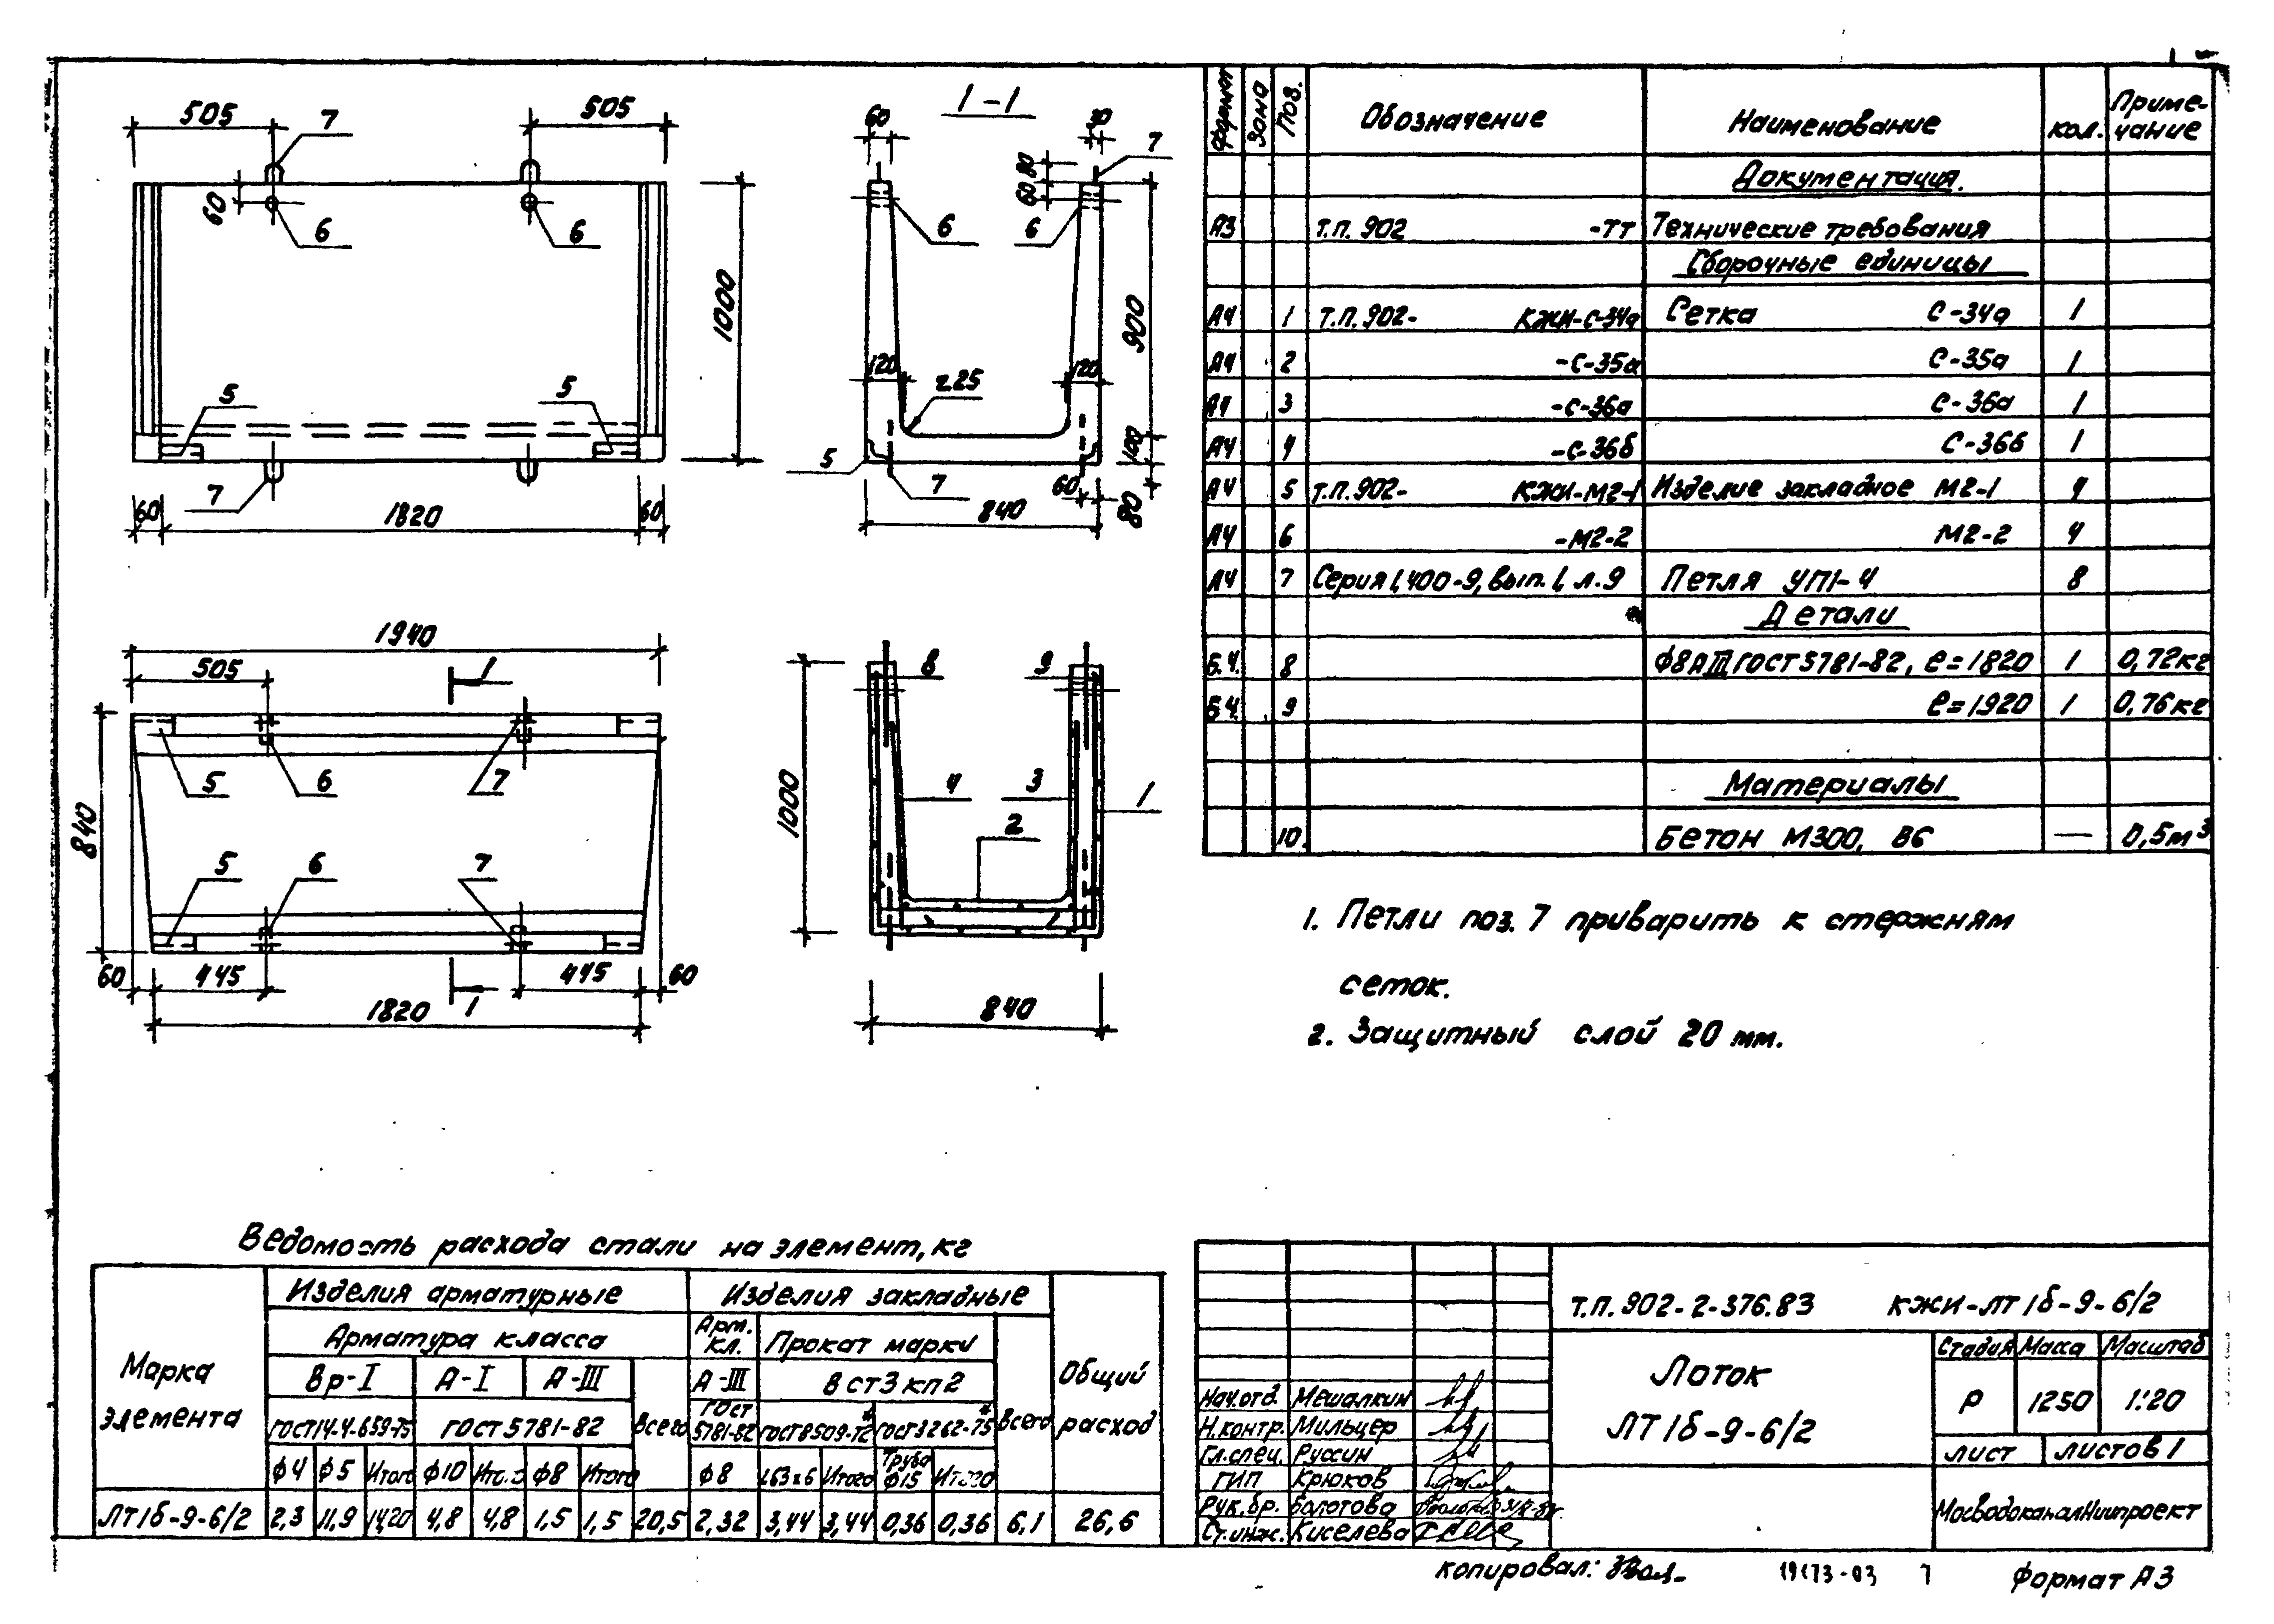 505
7
505
60
6
6
1000
5
5
7
60
1820
60
1-1
60
30
7
80
60
6
6
900
120
r.25
120
100
5
7
60
840
80
1940
505
1
840
5
6
7
5
6
7
60
445
445
60
1820
1
8
9
1000
4
3
1
2
840
Формат Зона Поз. Обозначение Наименование Кол. Примечание
Документация.
А3 Т.П. 902 -ТТ Технические требования
Сборочные единицы
А4 1 Т.П. 902- КЖИ-С-34а Сетка С-34а 1
А4 2 -С-35а С-35а 1
А4 3 -С-36а С-36а 1
А4 4 -С-36б С-36б 1
А4 5 Т.П. 902- КЖИ-М2-1 Изделие закладное М2-1 4
А4 6 -М2-2 М2-2 4
А4 7 Серия 1.400-9, вып. 1, л. 9 Петля УП1-4 8
Детали
Б.4. 8 Ф8АIII ГОСТ 5781-82, ℓ=1820 1 0,72кг
Б.4. 9 ℓ=1920 1 0,76кг
Материалы
10. Бетон М300, В6 — 0,5м³
1. Петли поз. 7 приварить к стержням
сеток.
2. Защитный слой 20 мм.
Ведомость расхода стали на элемент, кг
Марка элемента
Изделия арматурные Изделия закладные Общий расход
Арматура класса Всего Арм. кл. Прокат марки Всего
Вр-I А-I А-III А-III В Ст3 кп2
ГОСТ 14-4-659-75 ГОСТ 5781-82 ГОСТ 5781-82 ГОСТ 8509-72* ГОСТ 3262-75*
Ф4 Ф5 Итого Ф10 Итого Ф8 Итого Ф8 L63х6 Итого Труба Ф15 Итого
ЛТ1б-9-6/2 2,3 11,9 14,20 4,8 4,8 1,5 1,5 20,5 2,32 3,44 3,44 0,36 0,36 6,1 26,6
Т.П. 902-2-376.83 КЖИ-ЛТ1б-9-6/2
Лоток
ЛТ1б-9-6/2
Стадия Масса Масштаб
Р 1250 1:20
Лист Листов 1
МосводоканалНИИпроект
Нач.отд. Мешалкин
Н.контр. Мильцер
Гл.спец. Руссин
ГИП Крюков
Рук.бр. Болотова
Ст.инж. Киселева
копировал:
19173-03 7
Формат А3